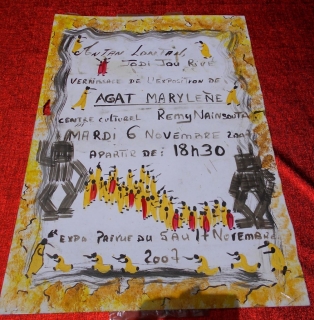 Antan Lontan,
Jodi Jou Rivé
Vernissage de l'exposition de
AGAT MARYLENE
Centre Culturel Remy Nainsouta
MARDI 6 NOVEMBRE 2007
APARTIR DE: 18h30
Expo Prévue du 5 au 17 Novembre
2007